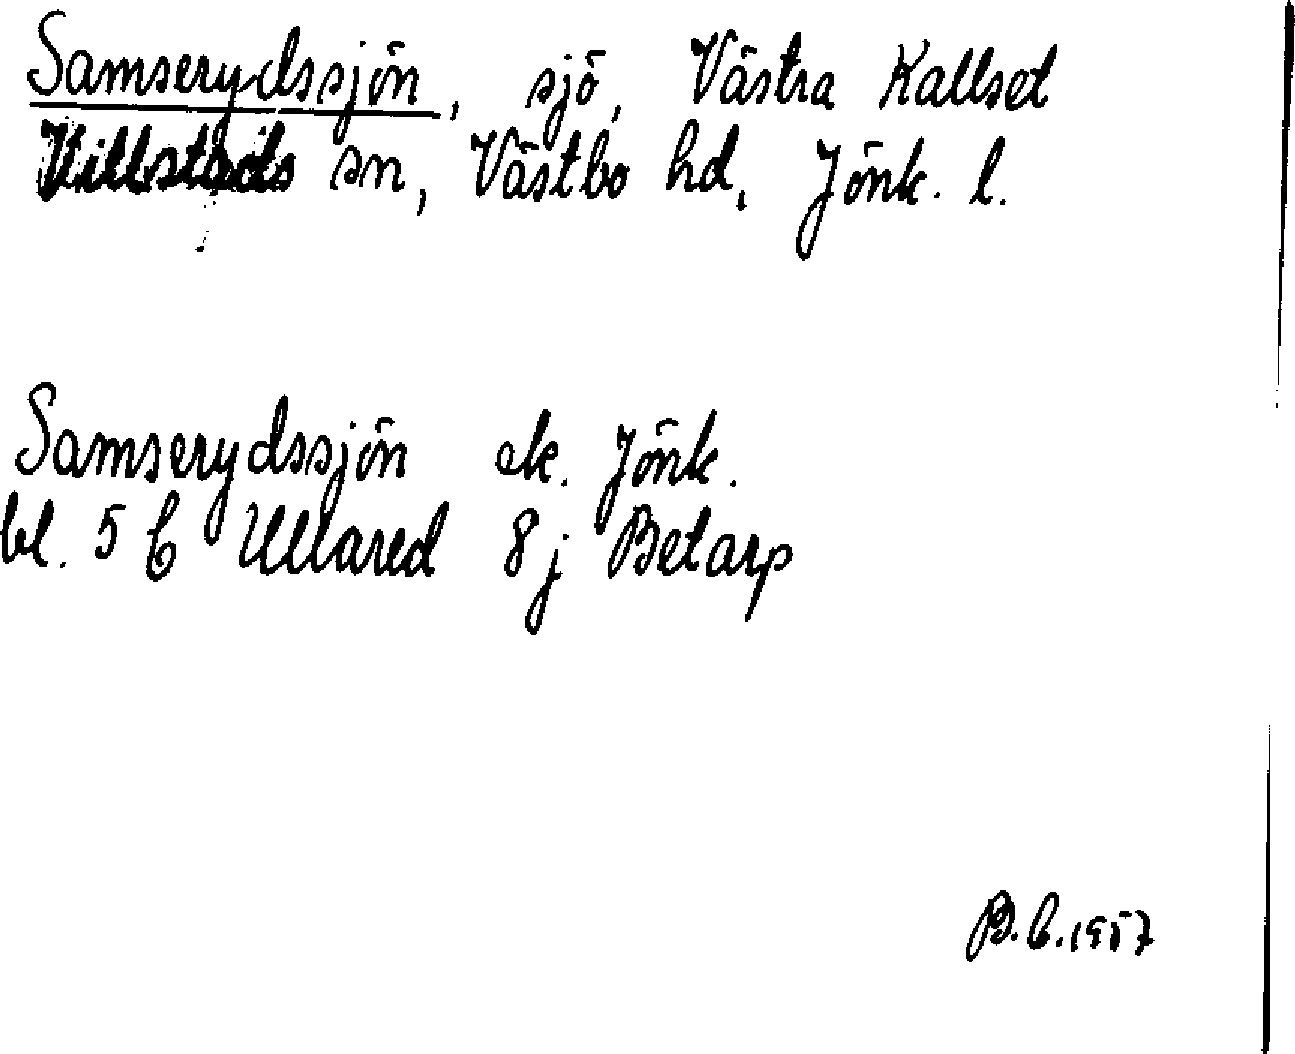 Samserydssjön, sjö, Västra Kallset
Villstads sn, Västbo hd, Jönk. l.
Samserydssjön ek. Jönk.
bl. 5 C Ullared 8 j Betarp
B.C. 1957